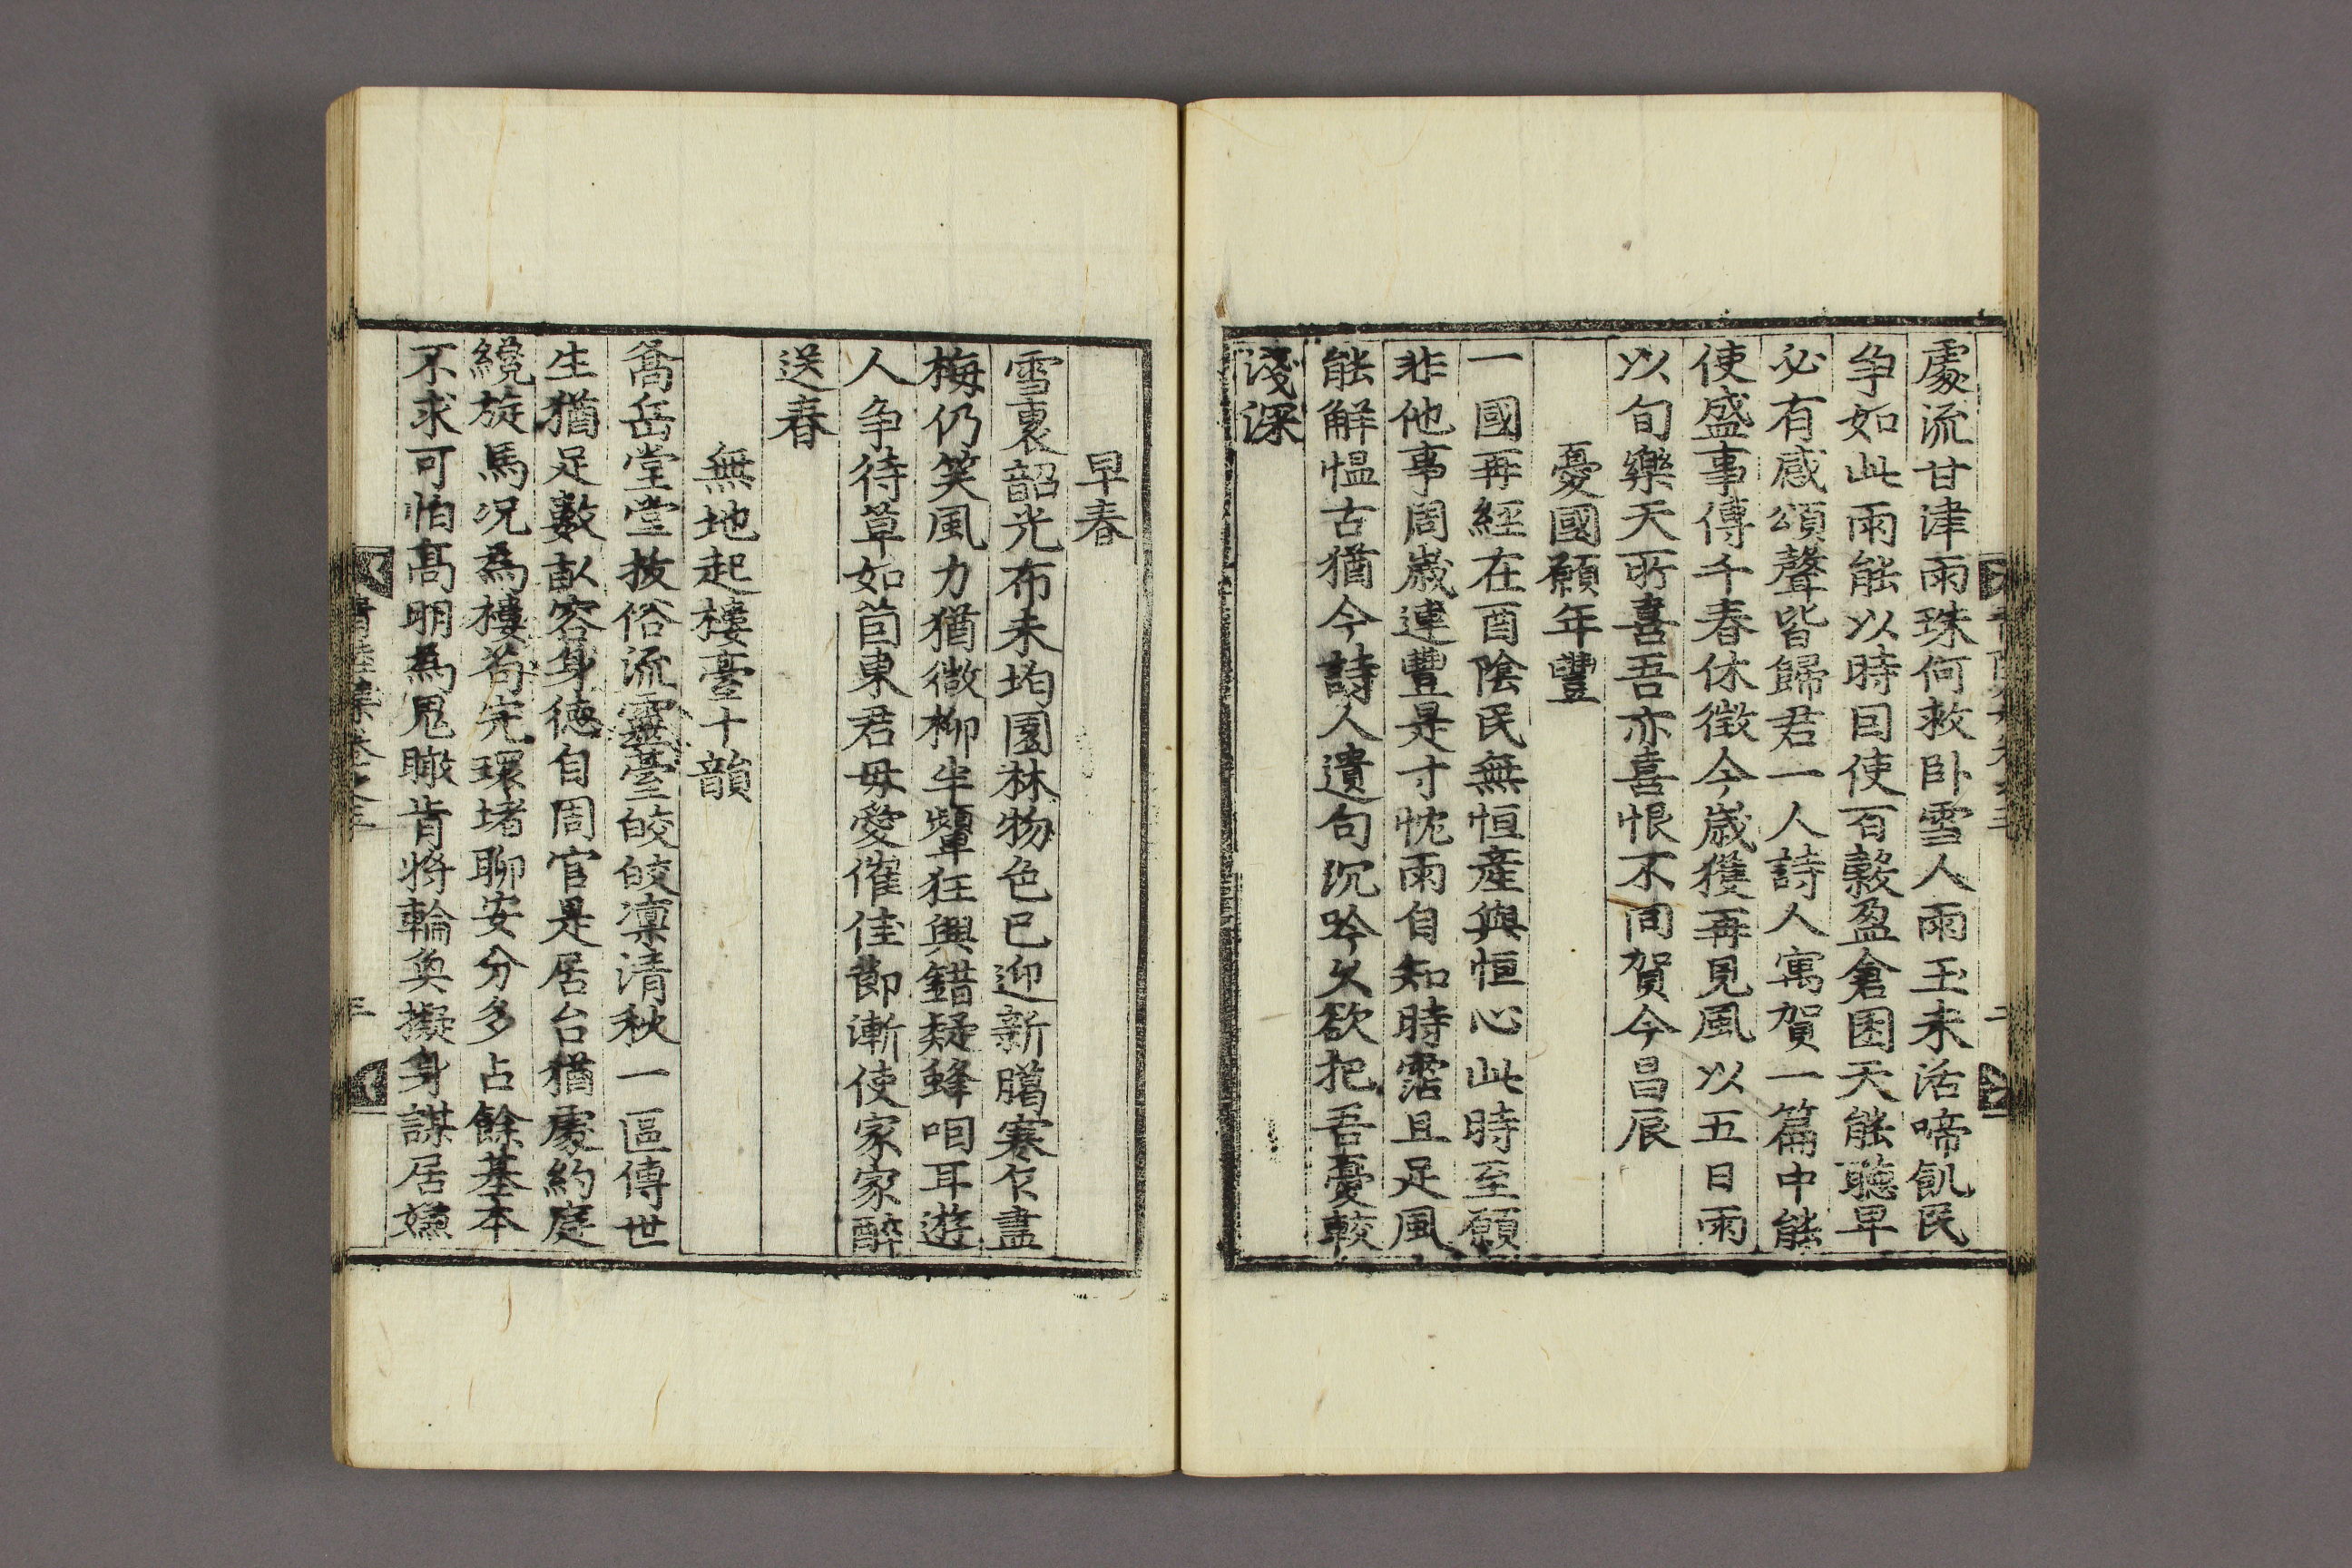 處流甘津雨珠何救卧雪人雨玉未活啼飢民
争如此雨能以時囙使百糓盈倉囷天能聽旱
必有感頌聲皆歸君一人詩人寓賀一篇中能
使盛事傳千春休徴今歳獲再見風以五日雨
以旬樂天所喜吾亦喜恨不同賀今昌辰
憂國願年豐
一國再經在酉陰民無恒產與恒心此時至願
非他事周歲連豊是寸忱雨自知時霑且足風
能解慍古猶今詩人遺句沉吟久欲把吾憂較
淺深
早春
雪裏韶光布未均園林物色已迎新臈寒乍盡
梅仍笑風力猶微柳半顰狂興錯疑蜂咱耳遊
人争待草如茵東君毋愛催佳節漸使家家醉
送春
無地起樓臺十韻
喬岳堂堂拔俗流靈臺皎皎凜清秋一區傳世
生猶足數畝容身德自周官是居台猶處約庭
纔旋馬况為樓苟完環堵聊安分多占餘基本
不求可怕髙明為鬼瞰肯將輪奐擬身謀居嫌